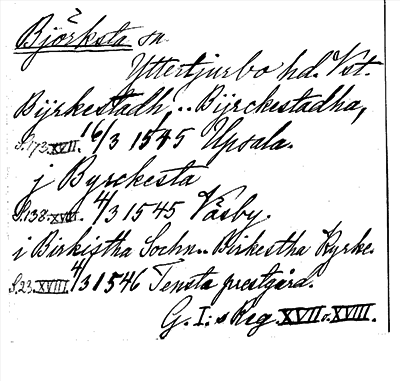 2
Björksta sn
Yttertjurbo hd. Vst.
Bijrkestadh, .. Bijrckestadha,
S. 173. XVII. 16/3 1545 Upsala.
j Byrckesta
S. 138. XVII. 4/3 1545 Väsby.
i Birkistha Sochn .. Birkestha Kyrke.
S. 23. XVIII. 4/3 1546 Tensta prestgård.
G. I:s Reg. XVII o. XVIII.